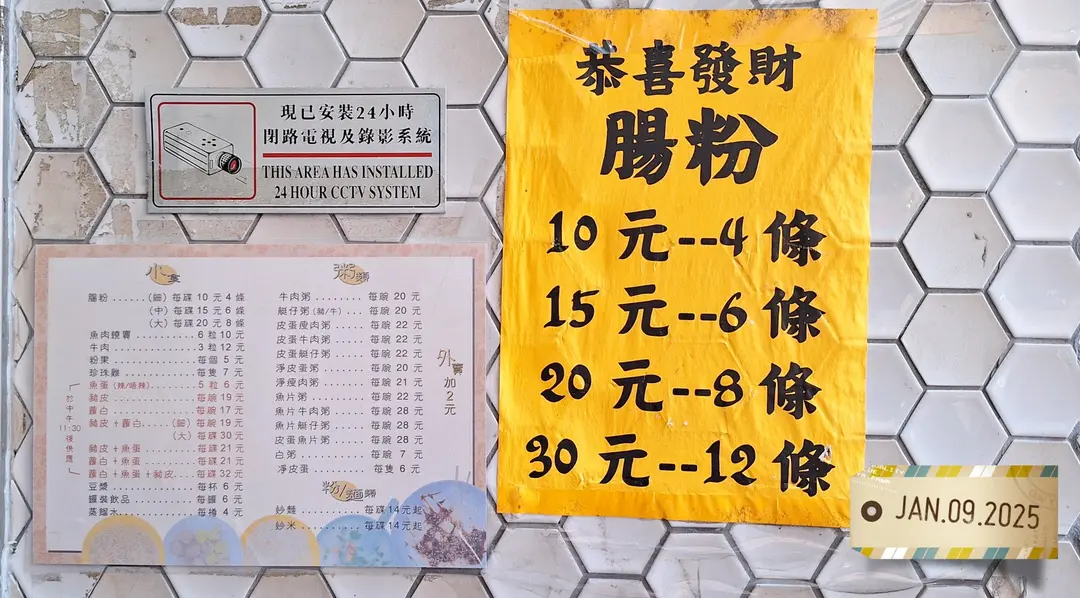 現已安裝24小時
閉路電視及錄影系統
THIS AREA HAS INSTALLED
24 HOUR CCTV SYSTEM
恭喜發財
腸粉
10 元--4 條
15 元--6 條
20 元--8 條
30 元--12 條
小食
腸粉......(細) 每碟 10 元 4 條
(中) 每碟 15 元 6 條
(大) 每碟 20 元 8 條
魚肉燒賣.........6 粒 10 元
牛肉............3 粒 12 元
粉果............每個 5 元
珍珠雞..........每隻 7 元
魚蛋(辣/唔辣).......5 粒 6 元
豬皮............每碗 19 元
蘿白............每碗 17 元
豬皮+蘿白....(細) 每碗 19 元
(大) 每碟 30 元
豬皮+魚蛋.......每碟 21 元
蘿白+魚蛋.......每碟 21 元
蘿白+魚蛋+豬皮....每碟 32 元
豆漿............每杯 6 元
罐裝飲品.........每罐 6 元
蒸餾水..........每樽 4 元
於中午11:30後供應
粥類
牛肉粥........每碗 20 元
艇仔粥(豬/牛)...每碗 20 元
皮蛋瘦肉粥.....每碗 22 元
皮蛋牛肉粥.....每碗 22 元
皮蛋艇仔粥.....每碗 22 元
淨皮蛋粥......每碗 20 元
淨瘦肉粥......每碗 21 元
魚片粥........每碗 22 元
魚片牛肉粥.....每碗 28 元
魚片艇仔粥.....每碗 28 元
皮蛋魚片粥.....每碗 28 元
白粥..........每碗 7 元
淨皮蛋........每隻 6 元
外賣加2元
粉/麵類
炒麵..........每碟14元起
炒米..........每碟14元起
JAN.09.2025